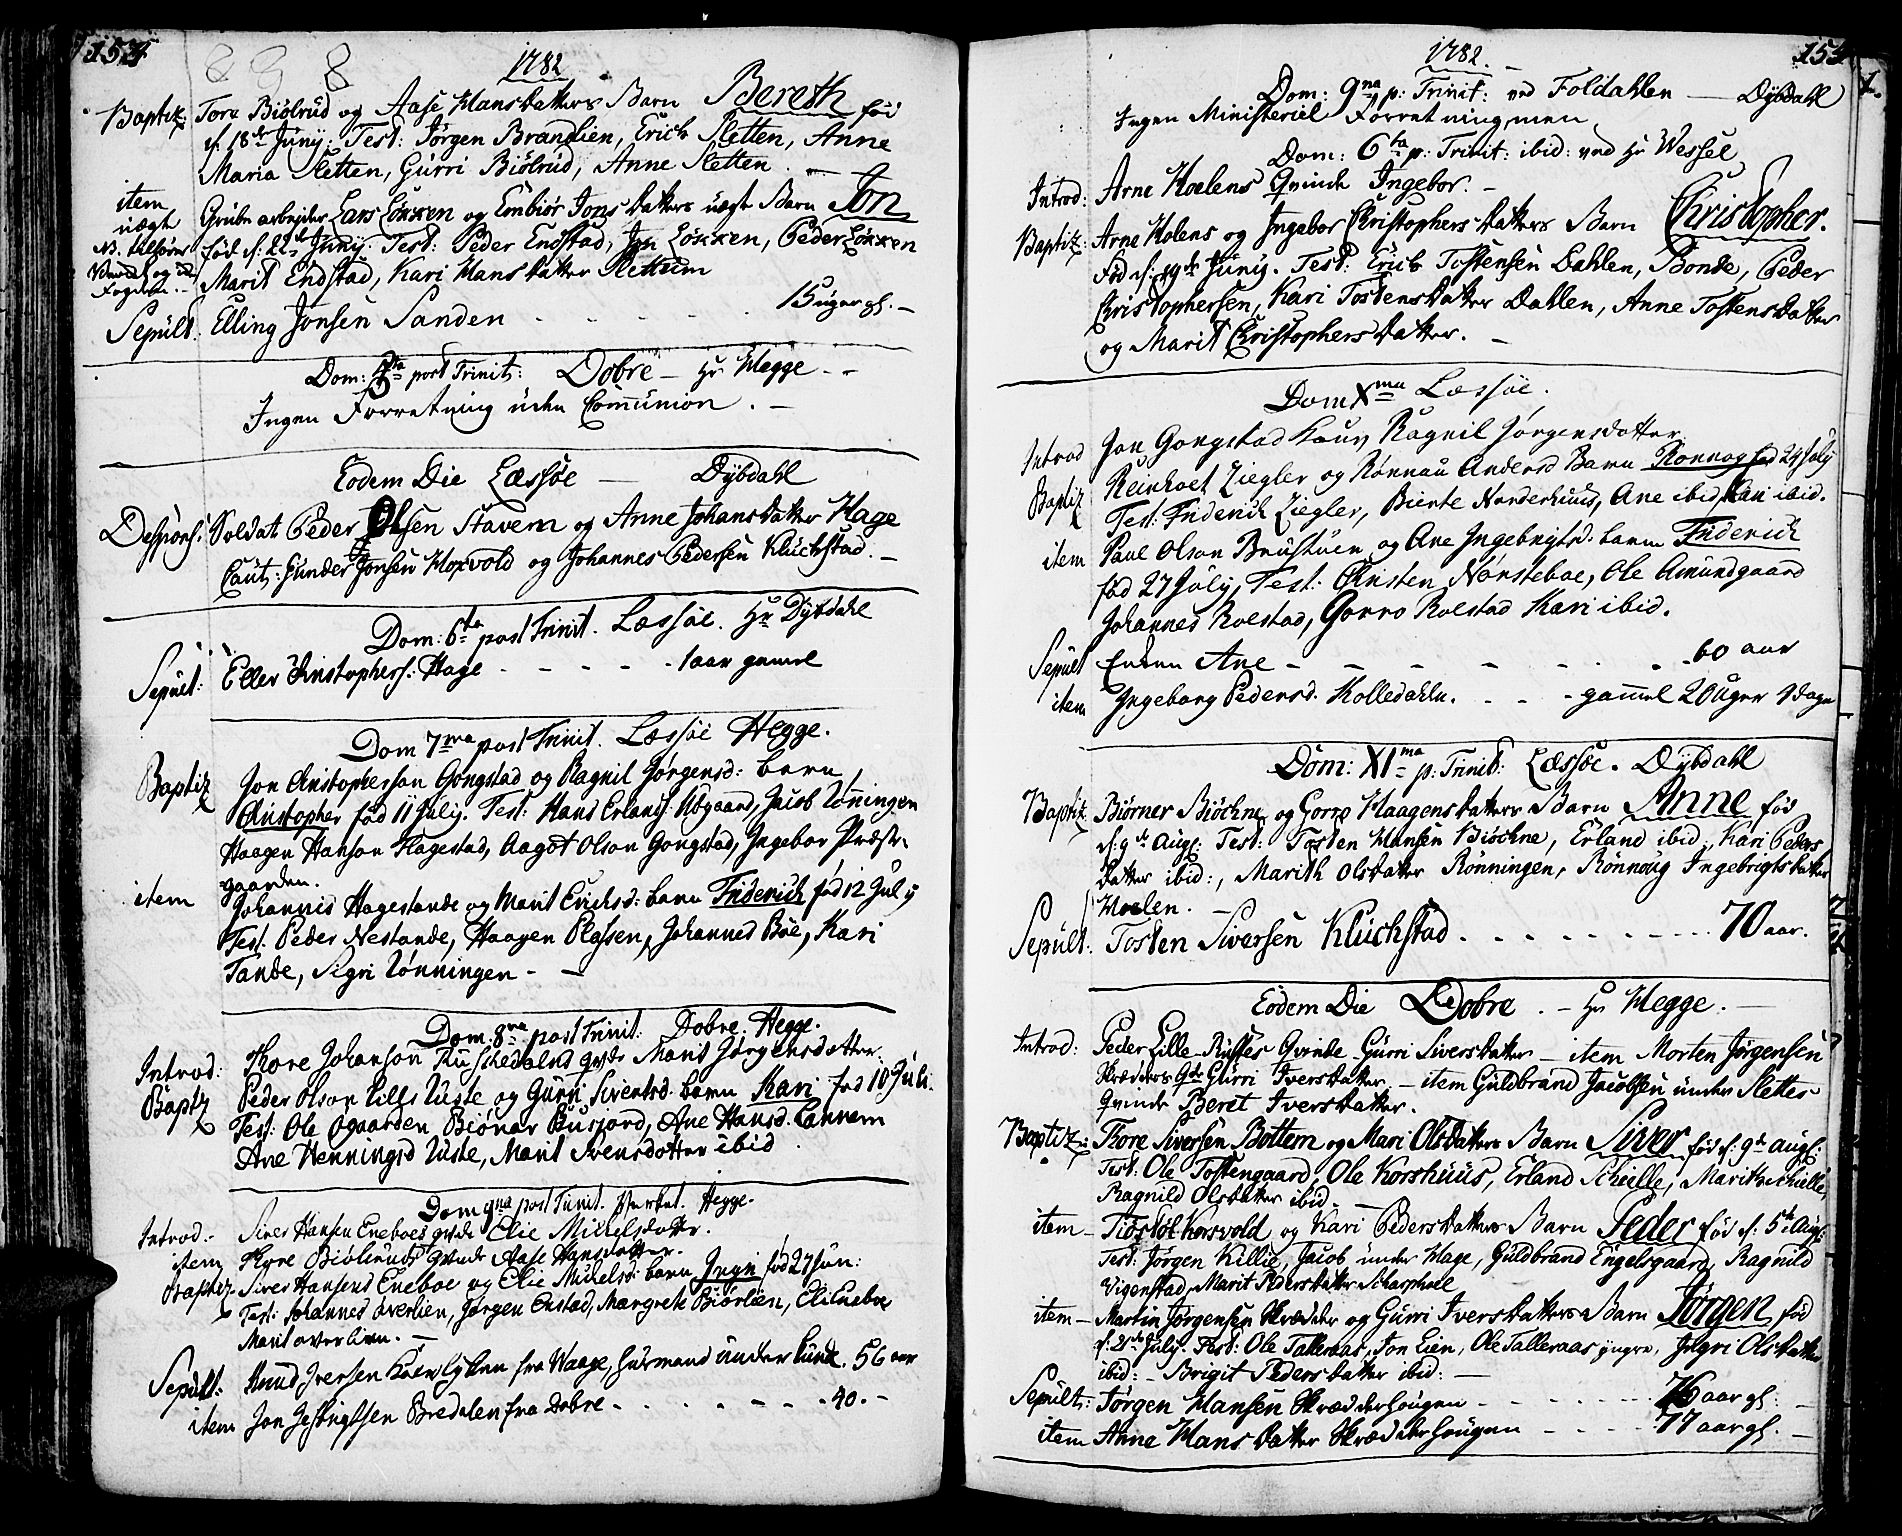 154
1782
Baptiz: Tore Biölrud og Aase Hansdatters Barn Bereth fød
d. 18de Junij. Test: Jørgen Brandlien, Erich Sletten, Anne
Maria Sletten, Gurri Biölrud, Anne Sletten.
item uægt Grubearbejder Lars Löкken og Embiör Jons datters uægt Barn Jon
fød d. 22de Junij. Test: Peder Endstad, Jon Løkken, Peder Løkken
Marit Endstad, Kari Hansdatter Slettum
Sepult. Elling Jonsen Sanden - - - - 15 uger gl. -
Dom: 5ta post Trinit: Dobre - Hr Hegge - -
Ingen Forretning uden Communion. -
Eodem Die Læssöe - Dÿbdahl
Desponsf: Soldat Peder Olsen Stavern og Anne Johansdatter Hage
Caut: Gunder Jonsen Hoxvold og Johannes Pedersen Kluchstad. -
Dom: 6ta post Trinit. Læssöe. Hr Dÿbdahl
Sepult: Eller Christophers: Hage - - - - 1 aar gamel
Dom 7ma post Trinit. Læssöe Hegge.
Baptiz Jon Christophersen Gongstad og Ragnil Jørgensd: barn
Christopher fød 11 July. Test: Hans Erlands. NØgaard, Jacob Lønningen
Haagen Hanson Hagestad, Aagot Olson Gongstad, Ingebor Præst-
gaarden.
item Johannes Hagestande og Marit Erichsd: barn Friderich fød 12 July
Test: Peder Nestande, Haagen Plassen, Johannes Böe, Kari
Tande, Sigri Lønningen - -
Dom: 8va post Trinit. Dobre: Hegge.
Introd: Thore Johanson qvde Marit Jørgensdotter.
Baptz Peder Olson Lille Ruste og Gurri Sivertsd. barn Kari fød 10 Juli.
Test: Ole Ogaarden, Biönar Busjord, Ane Hansd. Lannem
Ane Henningsd Ruste, Marit Svensdotter ibid.
Dom 9na post Trinit. Hegge.
Introd: - Siver Hansen Eneboes qvde Elie Michelsdotter.
item Thore Biölruds Qvinde Aase Hansdotter. -
Baptiz. Siver Hansens Eneboe og Elie Michelsd: barn Ingri fød 27 Jun:
Test: Johannes overlien, Jørgen Enstad, Margrete Biörlien, Eli Eneboe
Marit overlien. -
Sepult: Knud Iversen fra Waage, Husmand under Lunde. 56 aar
item Jon Bredalen fra Dobre - - - - - 40. -
1782. -
154
Dom: 9na p: Trinit: ved Foldahlen - Dÿbdahl
Ingen Ministeriel Forretning, men
Dom: 6ta p: Trinit: ibid: ved Hr Wessel
Introd: Arne Hoelens Qvinde Ingebor. -
Baptiz: Arne Holens og Ingebor Christophersdatters Barn Christopher.
Fød d: 19de Junij. Test: Erich Tostensen Dahlen, Bonde, Peder
Christophersen, Kari Tostensdatter Dahlen, Anne Tostensdatter
og Marit Christophersdatter. -
Dom Xma Læssöe.
Introd Jon Gongstad Ragnil Jørgensdotter
Baptiz Reinholt Ziegler og Rønnau Andersd Barn Ronnog fød 24 July
Test: Friderich Ziegler, Bierte Norderhuus, Ane ibid, Kari ibid.
item Paul Olson Brustuen og Ane Ingebrigtsd. barn Friderich
fød 27 July, Test: Christen Nørsteboe, Ole Amundgaard
Johannes Rolstad, Gorro Rolstad Kari ibid.
Sepult Enken Ane - - - - - 60 aar
item Ingeborg Pedersd. Holledahln. - - - gamel 20 uger 1 dage
Dom: XIma p: Trinit: Læssöe. Dÿbdahl
Baptiz Biörner Biöchne og Gorro Haagensdatters Barn Anne fød
d: 9de Aug: Test: Tosten Hansen Biöchne, Erland ibid:, Kari Peders
datter ibid:, Marith Olsdatter Rønningen, Rønnoug Ingebrigtsdatter
Hoelen. -
Sepult: Tosten Siversen Kluchstad - - - - - 70 aar.
Eodem Die Dobre. - Hr Hegge.
Introd: Peder Lille Rustes Qvinde Gurri Siversdatter - item Morten Jørgensen
Skræders Qde Gurri Iversdatter - item Guldbrand Jacobsen under Slettes
Qvinde Beret Iversdatter.
Baptiz: Thore Siversen Bottem og Mari Olsdatters Barn Siver fød d: 9de Aug:
Test: Ole Tostengaard, Ole Korshuus, Erland Schielle, Marith Schielle,
Ragnild Olsdatter ibid -
item - Tiøstol Korsvold og Kari Pedersdatters Barn Peder fød d: 5te Aug:
Test: Jørgen Killie, Jacob under Hage, Guldbrand Engelsgaard, Ragnild
Vigenstad, Marit Pedersdatter
item - Martin Jørgensen Skræder og Gurri Iversdatters Barn Jørgen fød
d: 2de July. Test: Ole Talleraas, Jon Lien, Ole Talleraas yngre, Sigri Olsdatter
ibid: - Brigit Pedersdatter ibid: -
Sepult: Jørgen Hansen Skræderhougen - - - - 76 aar gl:
item Anne Hansdatter Skræderhougen - - - - 77 aar gl. -